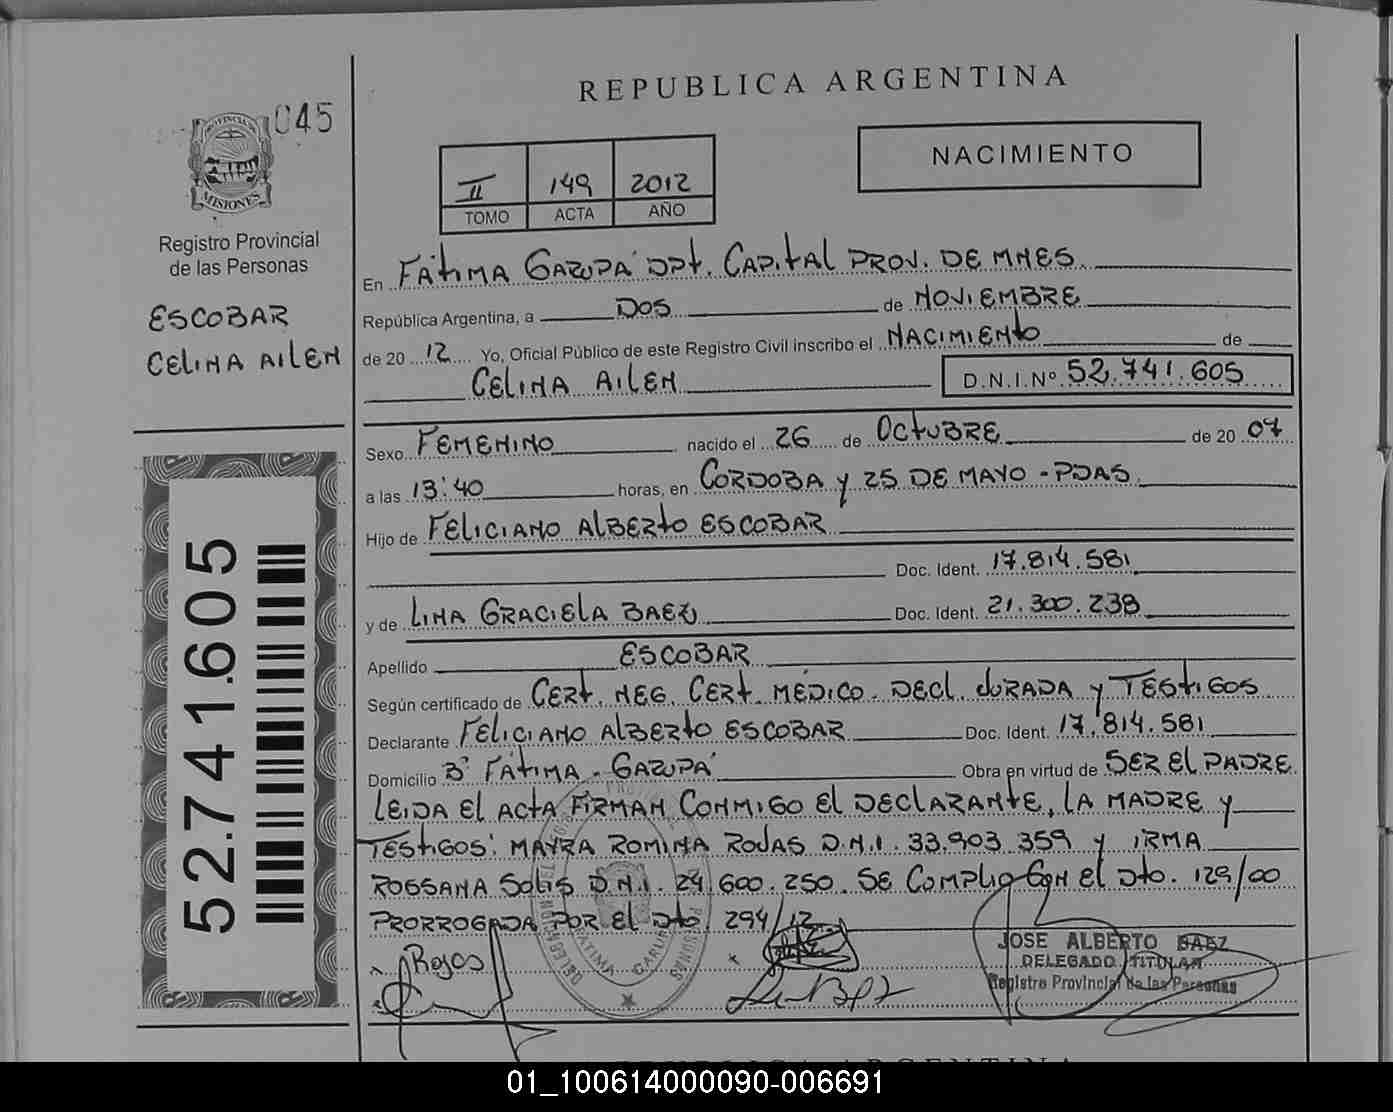 REPUBLICA ARGENTINA
045
PROVINCIA
MISIONES
Registro Provincial
de las Personas
ESCOBAR
CELINA AILEN
II 149 2012
TOMO ACTA AÑO
NACIMIENTO
En FÁTIMA GARUPÁ DPT. CAPITAL PROV. DE MNES
República Argentina, a DOS de NOVIEMBRE
de 20 12 Yo, Oficial Público de este Registro Civil inscribo el NACIMIENTO de
CELINA AILEN D.N.I.Nº 52.741.605
Sexo FEMENINO nacido el 26 de OCTUBRE de 20 07
a las 13:40 horas, en CORDOBA y 25 DE MAYO - PDAS.
Hijo de FELICIANO ALBERTO ESCOBAR
Doc. Ident. 17.814.581
y de LINA GRACIELA BAEZ Doc. Ident. 21.300.238
Apellido ESCOBAR
Según certificado de CERT. NEG. CERT. MÉDICO. DECL. JURADA y TESTIGOS
Declarante FELICIANO ALBERTO ESCOBAR Doc. Ident. 17.814.581
Domicilio Bº FÁTIMA - GARUPÁ Obra en virtud de SER El PADRE
LEIDA El ACTA FIRMAN CONMIGO El DECLARANTE, LA MADRE y
TESTIGOS: MAYRA ROMINA RODAS D.N.I. 33.903.359 y IRMA
ROSSANA SOLIS D.N.I. 24.600.250. SE COMPLIO CON El Dto. 129/00
PRORROGADA POR El Dto. 294/12
52.741.605
JOSE ALBERTO BAEZ
DELEGADO TITULAR
Registro Provincial de las Personas
FÁTIMA GARUPÁ
REPUBLICA ARGENTINA
01_100614000090-006691